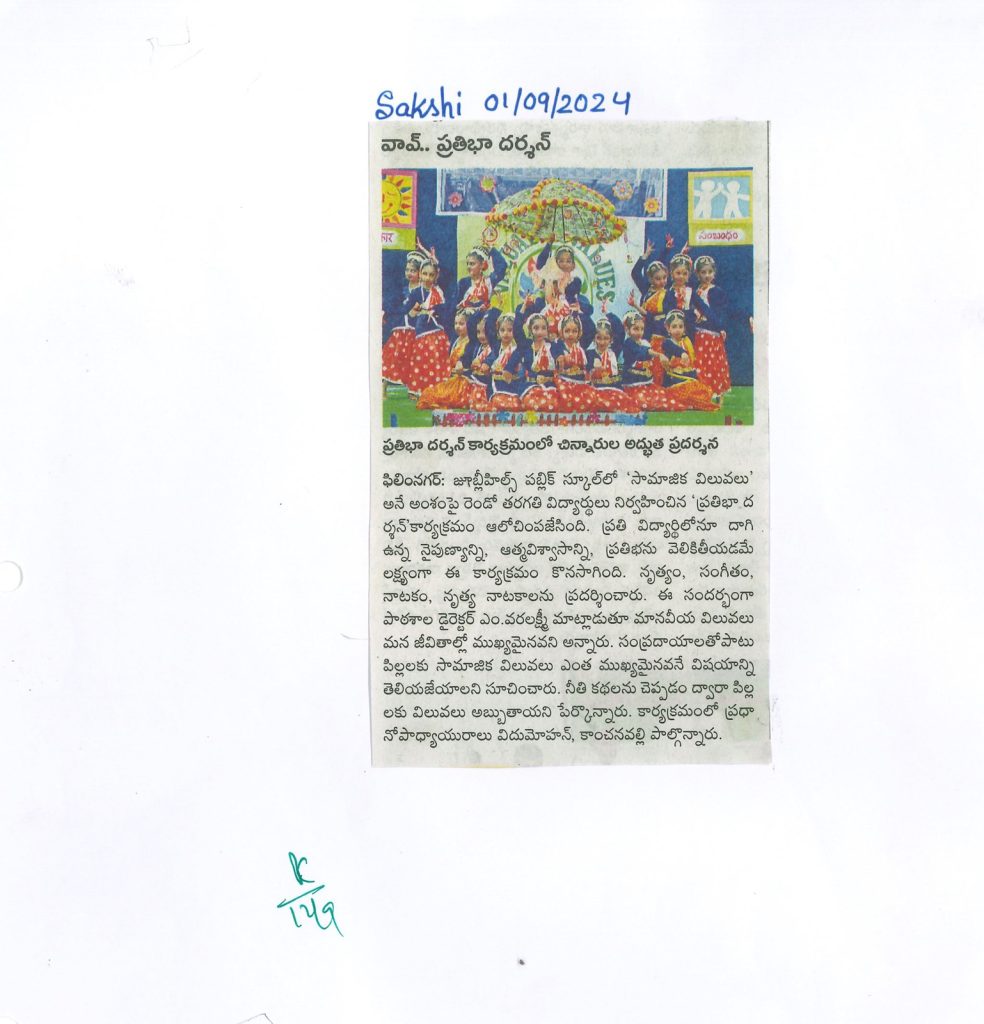 Sakshi 01/09/2024
వావ్.. ప్రతిభా దర్శన్
సంబంధం
VALUES
ప్రతిభా దర్శన్ కార్యక్రమంలో చిన్నారుల అద్భుత ప్రదర్శన
ఫిలింనగర్: జూబ్లీహిల్స్ పబ్లిక్ స్కూల్‌లో ‘సామాజిక విలువలు’
అనే అంశంపై రెండో తరగతి విద్యార్థులు నిర్వహించిన ‘ప్రతిభా ద
ర్శన్’కార్యక్రమం ఆలోచింపజేసింది. ప్రతి విద్యార్థిలోనూ దాగి
ఉన్న నైపుణ్యాన్ని, ఆత్మవిశ్వాసాన్ని, ప్రతిభను వెలికితీయడమే
లక్ష్యంగా ఈ కార్యక్రమం కొనసాగింది. నృత్యం, సంగీతం,
నాటకం, నృత్య నాటకాలను ప్రదర్శించారు. ఈ సందర్భంగా
పాఠశాల డైరెక్టర్ ఎం.వరలక్ష్మీ మాట్లాడుతూ మానవీయ విలువలు
మన జీవితాల్లో ముఖ్యమైనవని అన్నారు. సంప్రదాయాలతోపాటు
పిల్లలకు సామాజిక విలువలు ఎంత ముఖ్యమైనవనే విషయాన్ని
తెలియజేయాలని సూచించారు. నీతి కథలను చెప్పడం ద్వారా పిల్ల
లకు విలువలు అబ్బుతాయని పేర్కొన్నారు. కార్యక్రమంలో ప్రధా
నోపాధ్యాయురాలు విదుమోహన్, కాంచనవల్లి పాల్గొన్నారు.